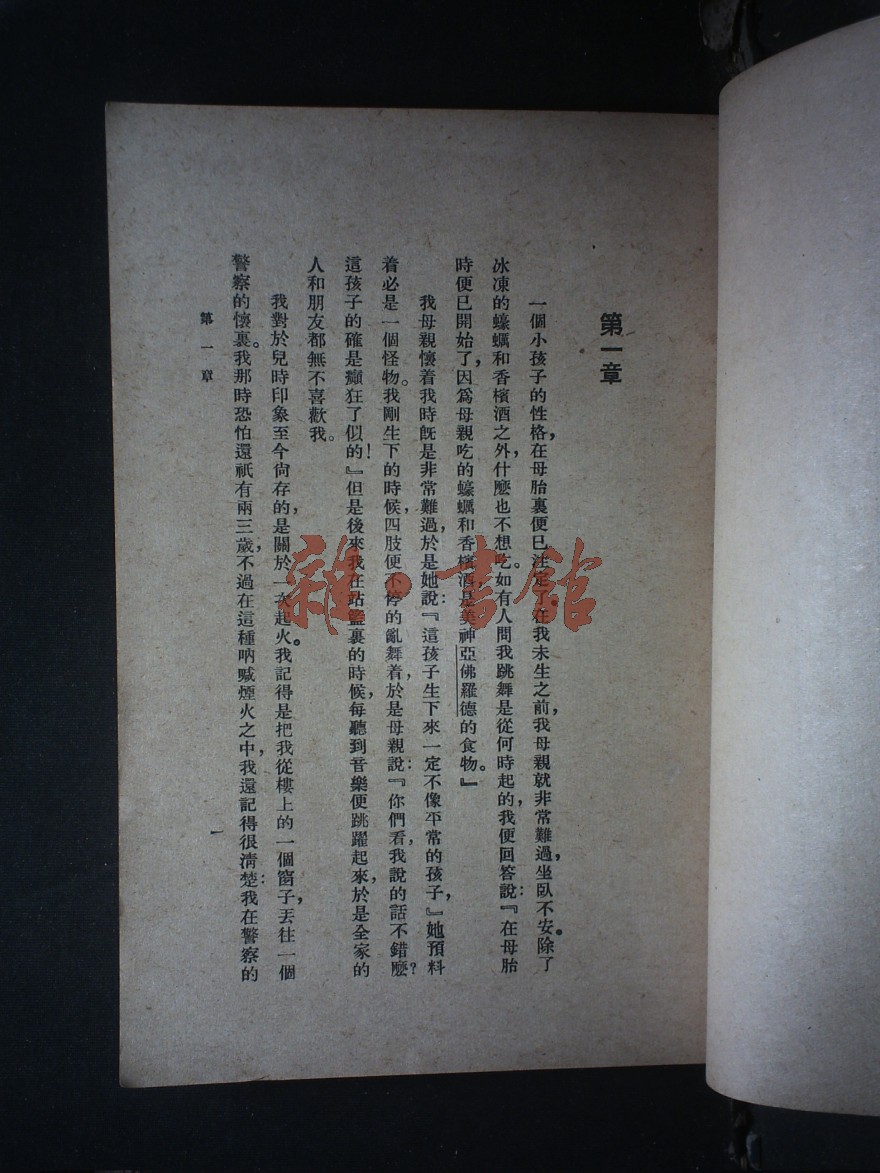 第一章
一個小孩子的性格，在母胎裏便已注定了。在我未生之前，我母親就非常難過，坐臥不安。除了
冰凍的蠔蠣和香檳酒之外，什麼也不想吃。如有人問我跳舞是從何時起的，我便回答說：『在母胎
時便已開始了，因爲母親吃的蠔蠣和香檳酒，是美神亞佛羅德的食物。』
我母親懷着我時旣是非常難過，於是她說：『這孩子生下來一定不像平常的孩子，』她預料
着必是一個怪物。我剛生下的時候，四肢便不停的亂舞着，於是母親說：『你們看，我說的話不錯麼？
這孩子的確是癲狂了似的！』但是後來我在站籃裏的時候，每聽到音樂便跳躍起來，於是全家的
人和朋友都無不喜歡我。
我對於兒時印象至今尙存的，是關於一次起火。我記得是把我從樓上的一個窗子，丟往一個
警察的懷裏。我那時恐怕還祇有兩三歲，不過在這種吶喊煙火之中，我還記得很淸楚：我在警察的
第一章
一
雜·書館